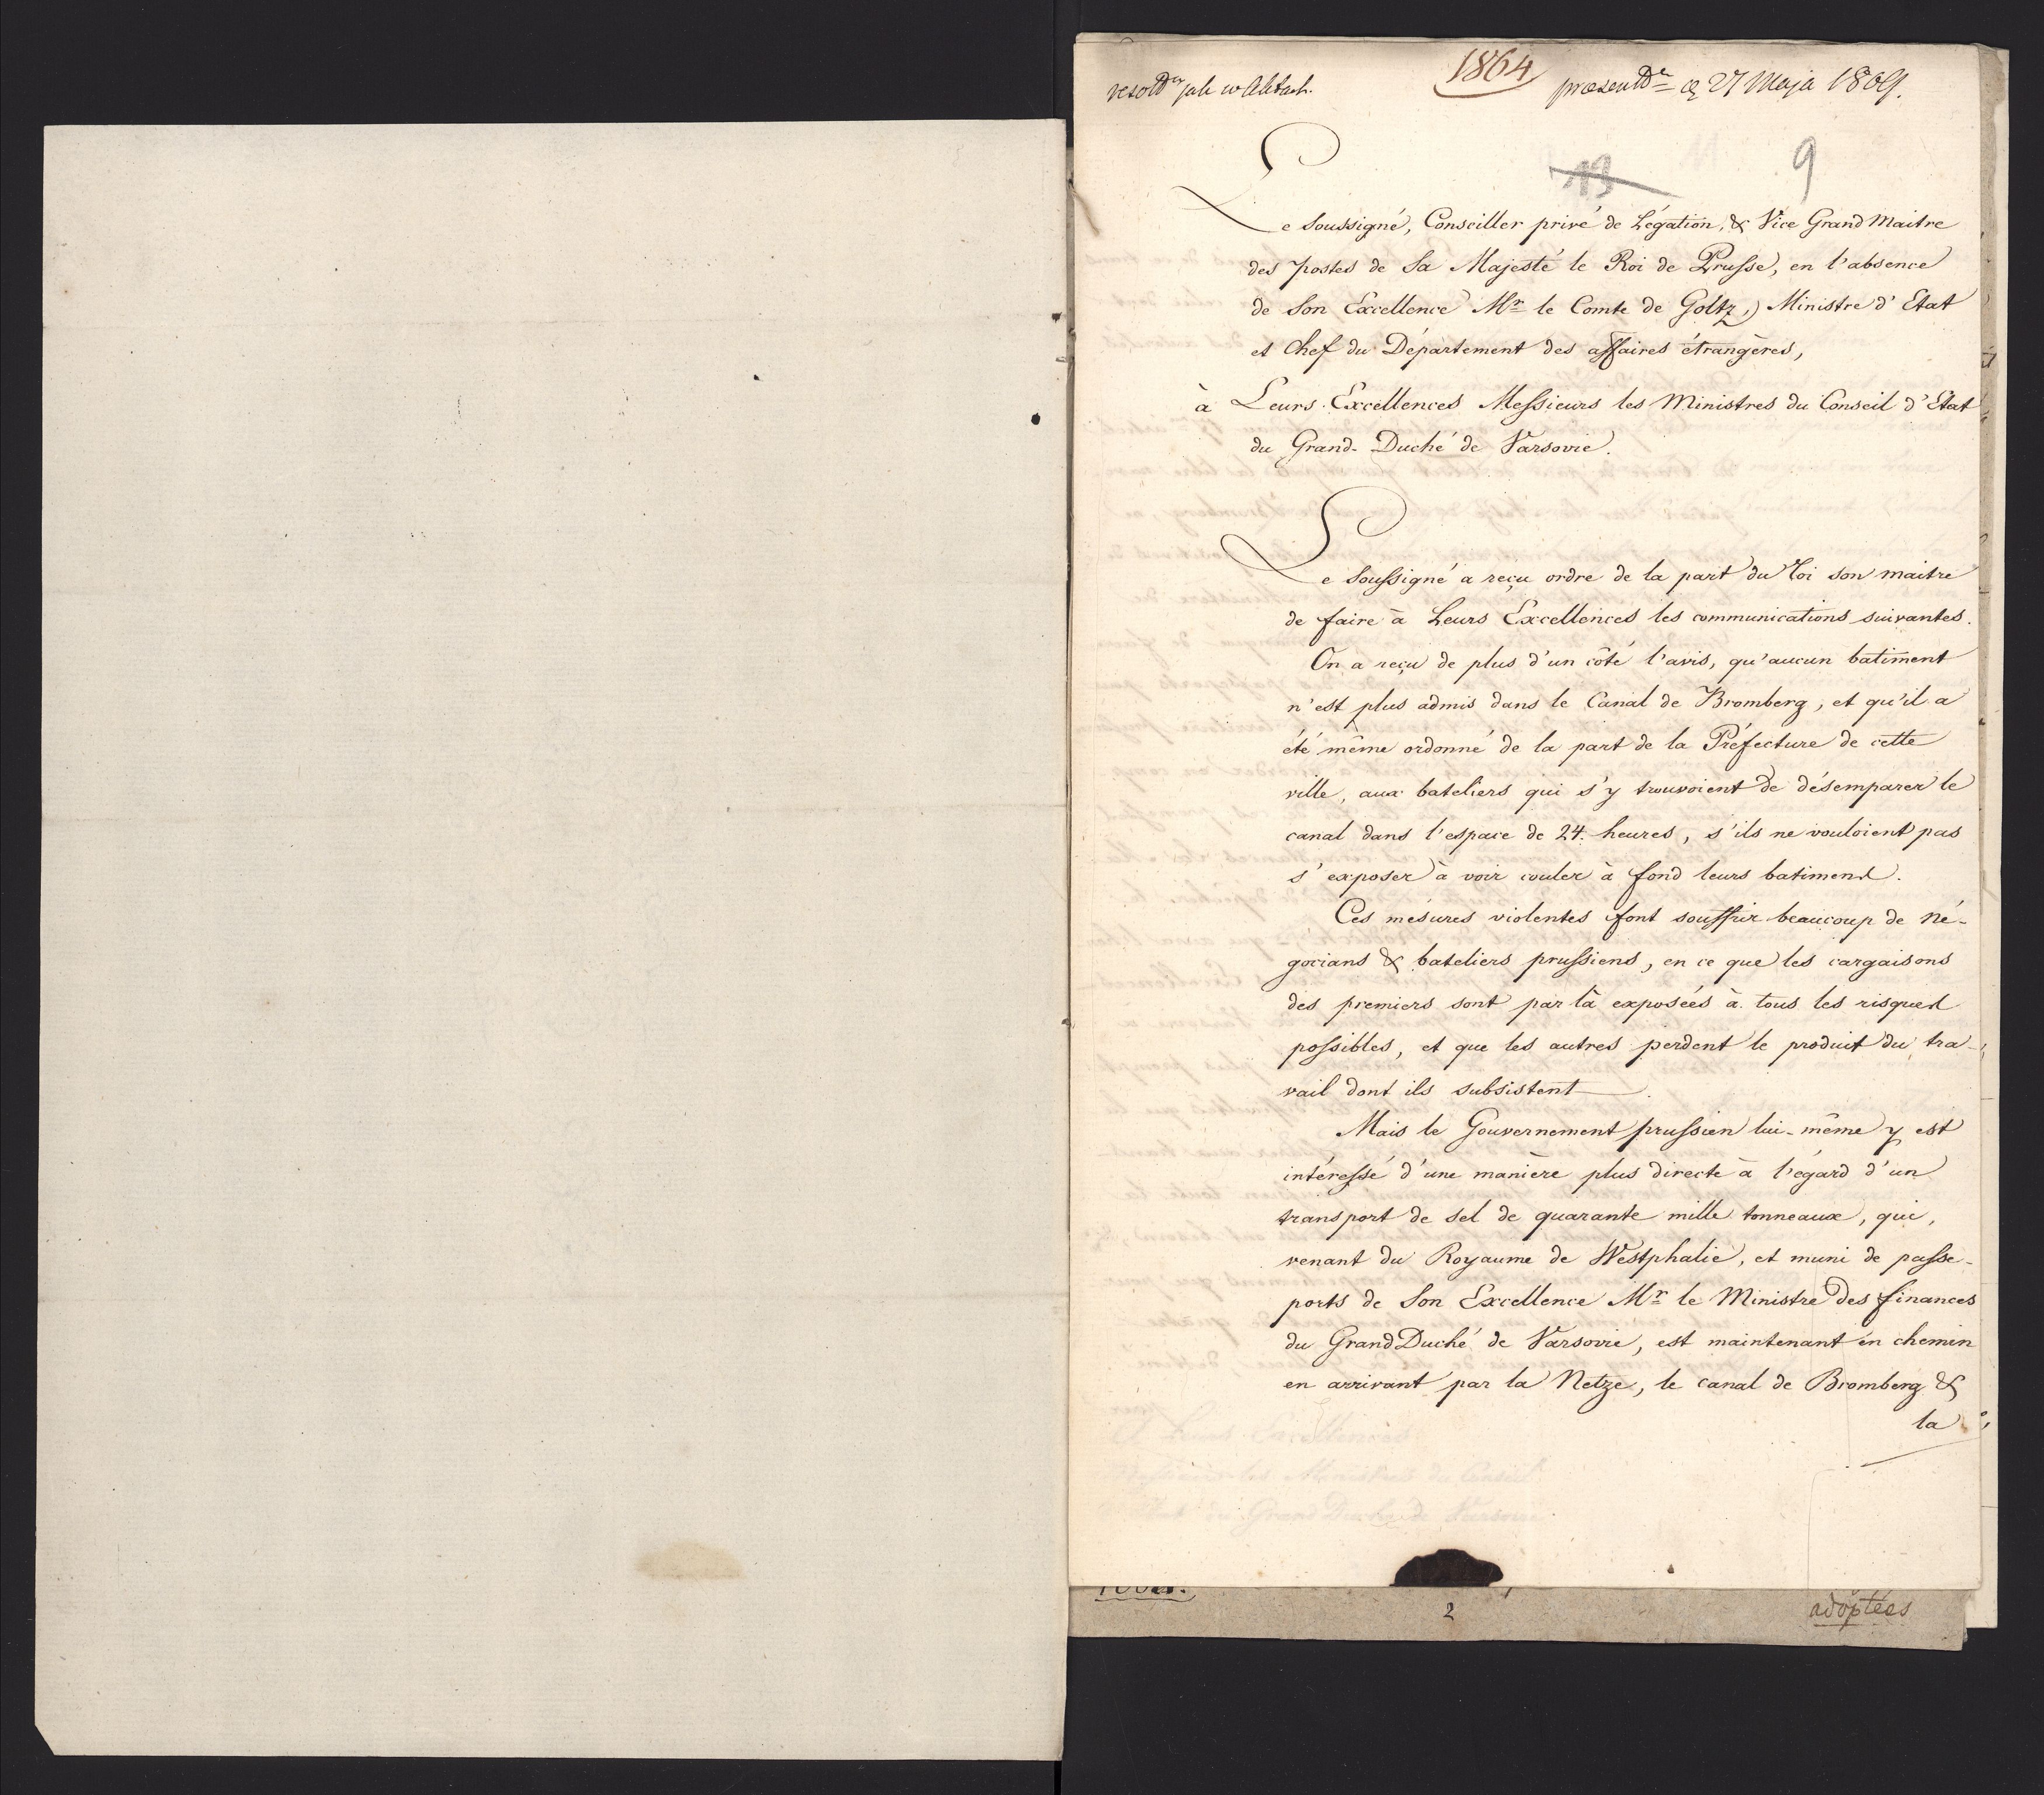 resol^dr jak w Aktach.
1864
praesent^dr d. 27 Maja 1809.
13
9
Le Soussigné, Conseiller privé de Légation, & Vice Grand Maitre
des Postes de Sa Majesté le Roi de Prusse, en l'absence
de Son Excellence Mr le Comte de Goltz, Ministre d'Etat
et Chef du Département des affaires étrangères,
à Leurs Excellences Messieurs les Ministres du Conseil d'Etat
du Grand-Duché de Varsovie.
Le Soussigné a reçu ordre de la part du Roi son maitre
de faire à Leurs Excellences les communications suivantes.
On a reçu de plus d'un côté l'avis, qu'aucun batiment
n'est plus admis dans le Canal de Bromberg, et qu'il a
été même ordonné de la part de la Préfecture de cette
ville, aux bateliers qui s'y trouvoient de désemparer le
canal dans l'espace de 24. heures, s'ils ne vouloient pas
s'exposer à voir couler à fond leurs batimens.
Ces mésures violentes font souffrir beaucoup de né-
gocians & bateliers prussiens, en ce que les cargaisons
des premiers sont par là exposées à tous les risques
possibles, et que les autres perdent le produit du tra-
vail dont ils subsistent.
Mais le Gouvernement prussien lui-même y est
intéressé d'une manière plus directe à l'égard d'un
transport de sel de quarante mille tonneaux, qui,
venant du Royaume de Westphalie, et muni de passe-
ports de Son Excellence Mr le Ministre des finances
du Grand Duché de Varsovie, est maintenant en chemin
en arrivant par la Netze, le canal de Bromberg &
la
2
adoptées